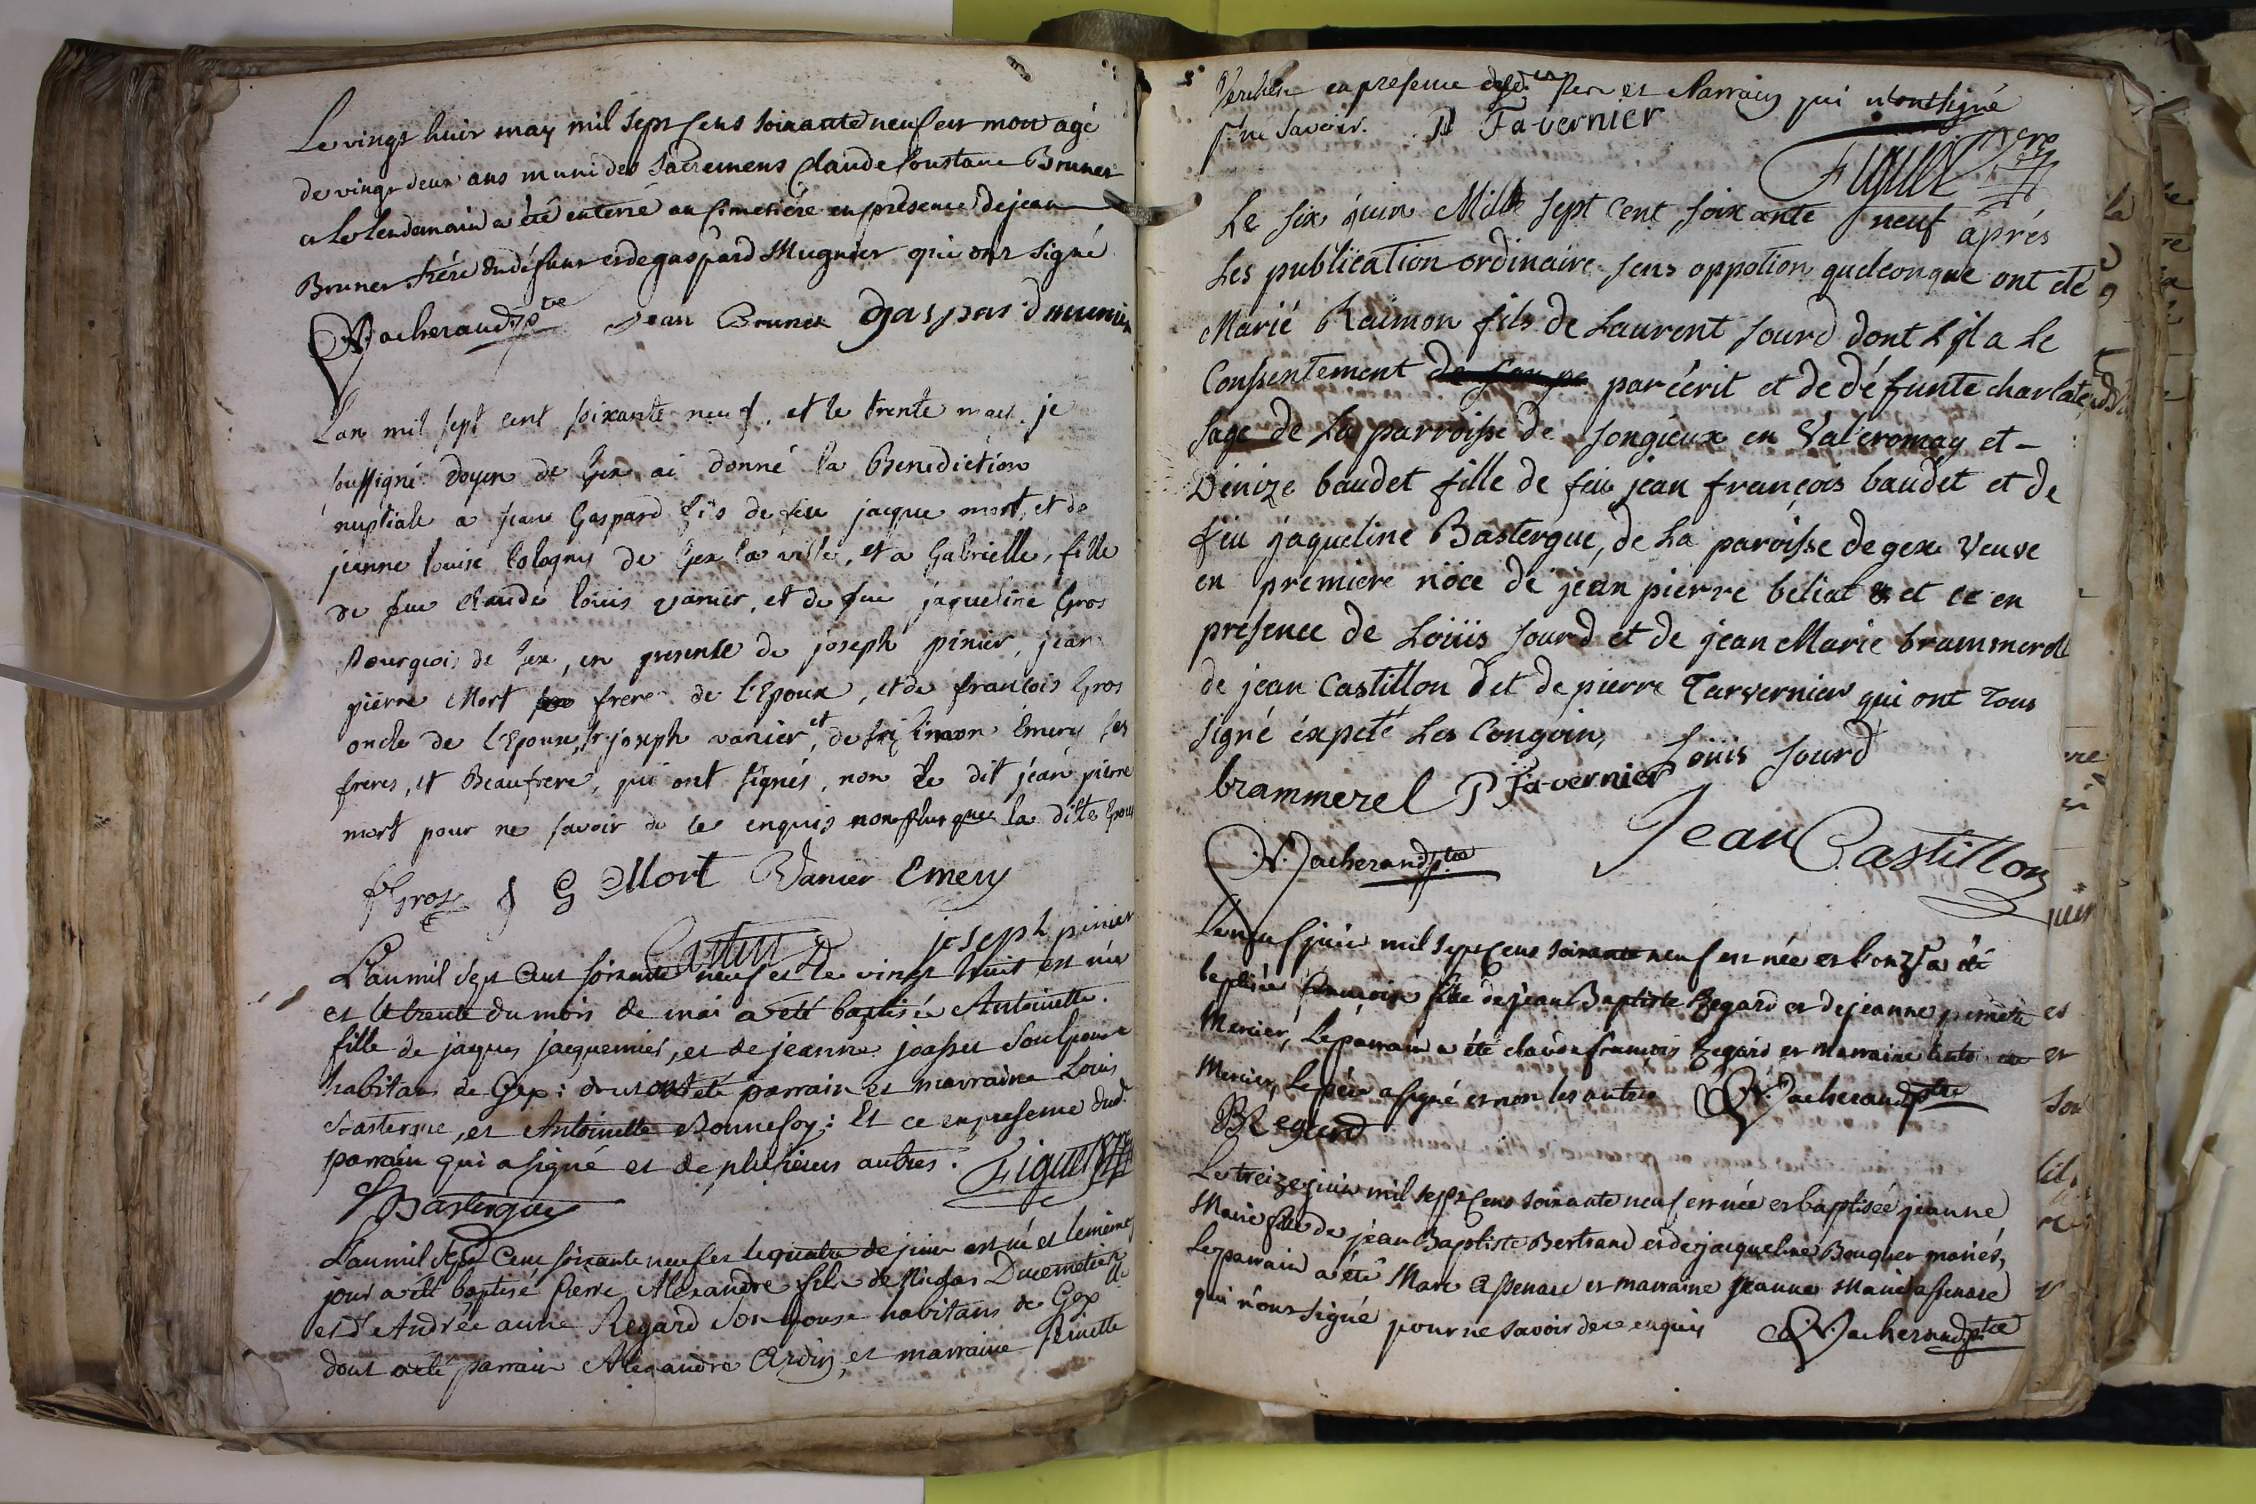 Le vingt huit may mil sept cens soixante neuf est mort agé
de vingt deux ans muni des sacremens Claude Constant Brunet
et le lendemain a été enterré au cimetiére en présence de jean
Brunet frére du défunt et de gaspard Mugnier qui ont signé
Vacherand ptre Jean Brunet gaspard munier
L'an mil sept cent soixante neuf, et le trente mai je
soussigné doyen de Gex ai donné la Benediction
nuptiale a jean Gaspard fils de feu jacque mort, et de
jeanne louise Cologny de Gex la ville, et a Gabrielle, fille
de feu claude louis vanier, et de feue jaqueline Gros
Bourgeois de Gex, en presense de joseph pinier, jean
pierre Mort frere de l'Epoux, et de francois Gros
oncle de l'Epouse, joseph vanier, et de Emery ses
freres, et Beaufrere, qui ont signés, non le dit jéan pierre
mort pour ne savoir de ce enquis non plus que la dite Epouse
f Gros J G Mort Vanier Emery
joseph pinier
L'an mil sept Cent soixante neuf et le vingt huit est née
et le trente du mois de mai a été baptisée Antoinette
fille de jaques jacquemier, et de jeanne joasset son épouse
habitans de Gex: dont ont été parrain et marraine Louis
Bastergue, et Antoinette Bonnefoy: Et ce en presence dud.
parrain qui a signé et de plusieurs autres. Figuet ptre
Bastergue
L'an mil sept Cent soixante neuf et le quatre de juin est né et le même
jour a été baptisé Pierre Alexandre fils de Nicolas Ducemetier
et d'Andrée aimé Regard son épouse habitans de Gex
dont a été parrain Alexandre Ardin, et marraine Pernette
en presence desd. Pere et Parrain qui n'ont signé
p. ne Savoir. P Tavernier
Figuet ptre
Le six juin Mille sept Cent soixante neuf aprés
Les publication ordinaire sens oppotion quelconque ont été
Marié Raimon fils de Laurent sourd dont L il a Le
Conssentement de son pe par écrit et de défunte charlate
sage de La parroisse de songieux en Valeromay et -
Dénize baudet fille de feu jean françois baudet et de
feu jaqueline Bastergue, de La paroisse de gex Veuve
en premiere nôce de jéan pierre beliat et et ce en
presence de Loüis sourd et de jean Marie brammerel
de jean Castillon d et de pierre Tarvernier qui ont Tous
signé éxpeté Les Congoin,
Loüis sourd
brammerel P Tavernier
Jean Castillon
Vacherand ptre
Le neuf juin mil sept cens soixante neuf est née et l'onze a été
baptisée francoise fille de jean Baptiste Regard et de jeanne pernette
Mercier, Le parrain a été claude francois Regard et marraine
Mercier, Le pére a signé et non les autres Vacherand ptre
B Regard
Le treize juin mil sept cens soixante neuf est née et baptisée jeanne
Marie fille de jéan Baptiste Bertrand et de jacqueline Bouquet mariés,
Le parrain a été Marc Assenare et marraine Jeanne Marie assenare
qui n'ont signé pour ne savoir de ce enquis Vacherand ptre